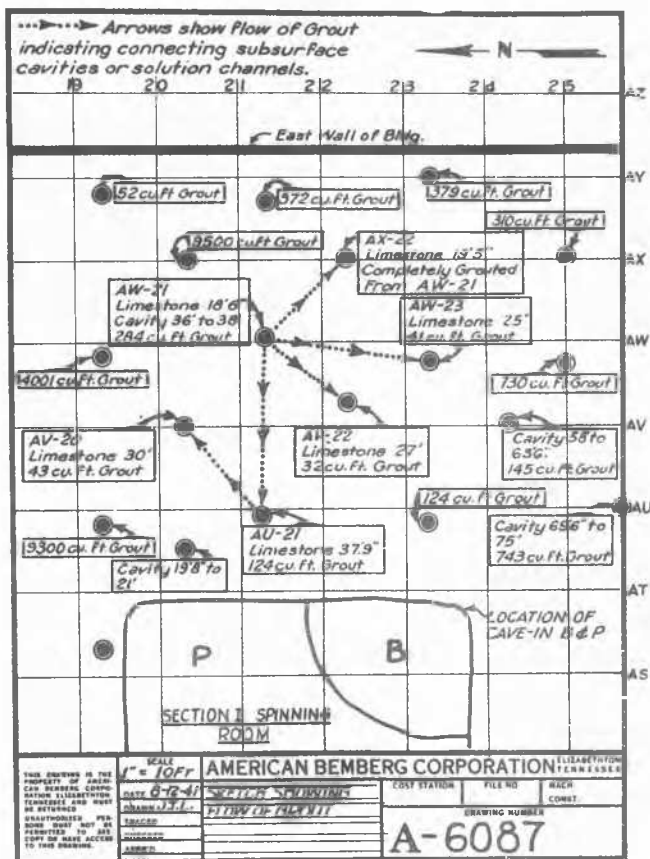 Arrows show Flow of Grout
indicating connecting subsurface
cavities or solution channels.
N
19 20 21 22 23 24 25
AZ
East Wall of Bldg.
AY
52 cu.ft. Grout
572 cu.ft. Grout
379 cu.ft. Grout
310 cu.ft. Grout
9500 cu.ft Grout
AX-22
Limestone 19'5"
Completely Grouted
From AW-21
AX
AW-21
Limestone 18'6"
Cavity 36' to 38'
284 cu.ft. Grout
AW-23
Limestone 25'
cu.ft. Grout
AW
4001 cu.ft. Grout
730 cu.ft. Grout
AV
AV-20
Limestone 30'
43 cu.ft. Grout
22
Limestone 27'
32 cu.ft. Grout
Cavity 58 to
63'6"
145 cu.ft. Grout
124 cu.ft Grout
AU
9300 cu.ft. Grout
Cavity 19'8" to
21'
AU-21
Limestone 37.9"
124 cu.ft. Grout
Cavity 69'6" to
75'
743 cu.ft. Grout
AT
LOCATION OF
CAVE-IN B & P
P
B
AS
SECTION I SPINNING
ROOM
THIS DRAWING IS THE
PROPERTY OF AMERI-
CAN BEMBERG CORPO-
RATION ELIZABETHTON
TENNESSEE AND MUST
BE RETURNED
UNAUTHORIZED PER-
SONS MUST NOT BE
PERMITTED TO SEE
COPY OR HAVE ACCESS
TO THIS DRAWING.
SCALE
1" = 10FT
DATE 8-12-41
DRAWN J.T.L.
TRACED
AMERICAN BEMBERG CORPORATION
ELIZABETHTON
TENNESSEE
SKETCH SHOWING
FLOW OF GROUT
COST STATION
FILE NO
MACH
CONST.
DRAWING NUMBER
A-6087